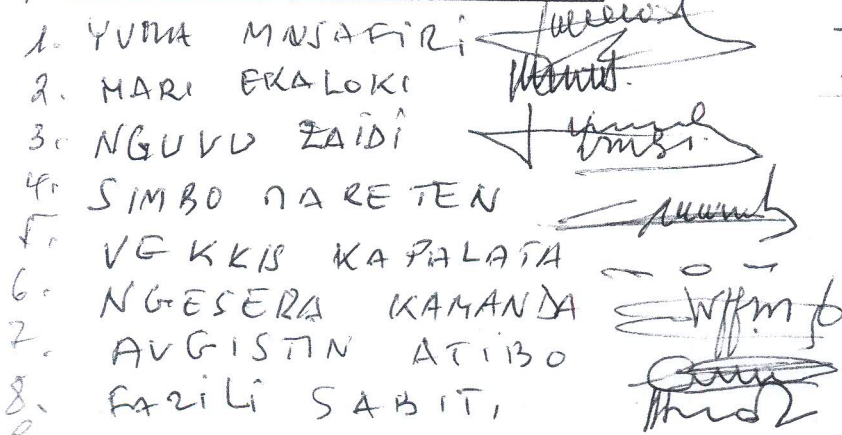 1. YUMA MNSAFIRI
2. MARI EKALOKI
3. NGUVU ZAIDI
4. SIMBO MARETEN
5. VEKKIS KAPALATA
6. NGESERA KAMANDA
7. AVGISTIN ATIBO
8. FAZILI SABITI